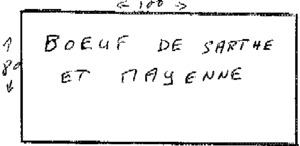 ← 100 →
↑
80
↓
BOEUF DE SARTHE
ET MAYENNE